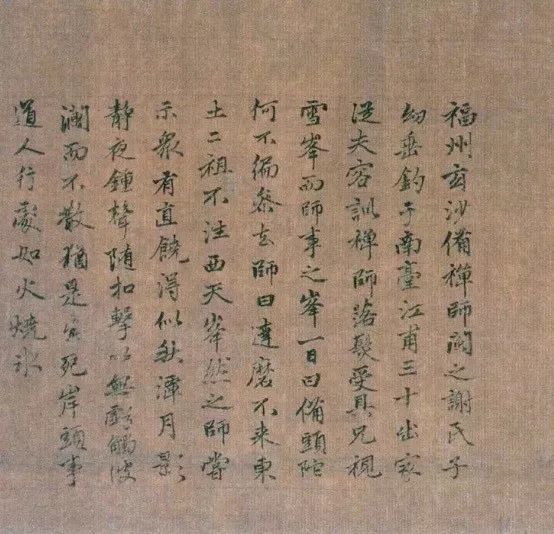 福州玄沙備禪師閩之謝氏子
幼垂釣于南臺江甫三十出家
從夫容訓禪師落髮受具兄視
雪峯而師事之峯一日曰備頭陀
何不徧參去師曰達磨不来東
土二祖不往西天峯然之師嘗
示衆有直饒得似秋潭月影
静夜鍾聲随扣擊以無虧觸波
瀾而不散猶是生死岸頭事
道人行處如火燒氷